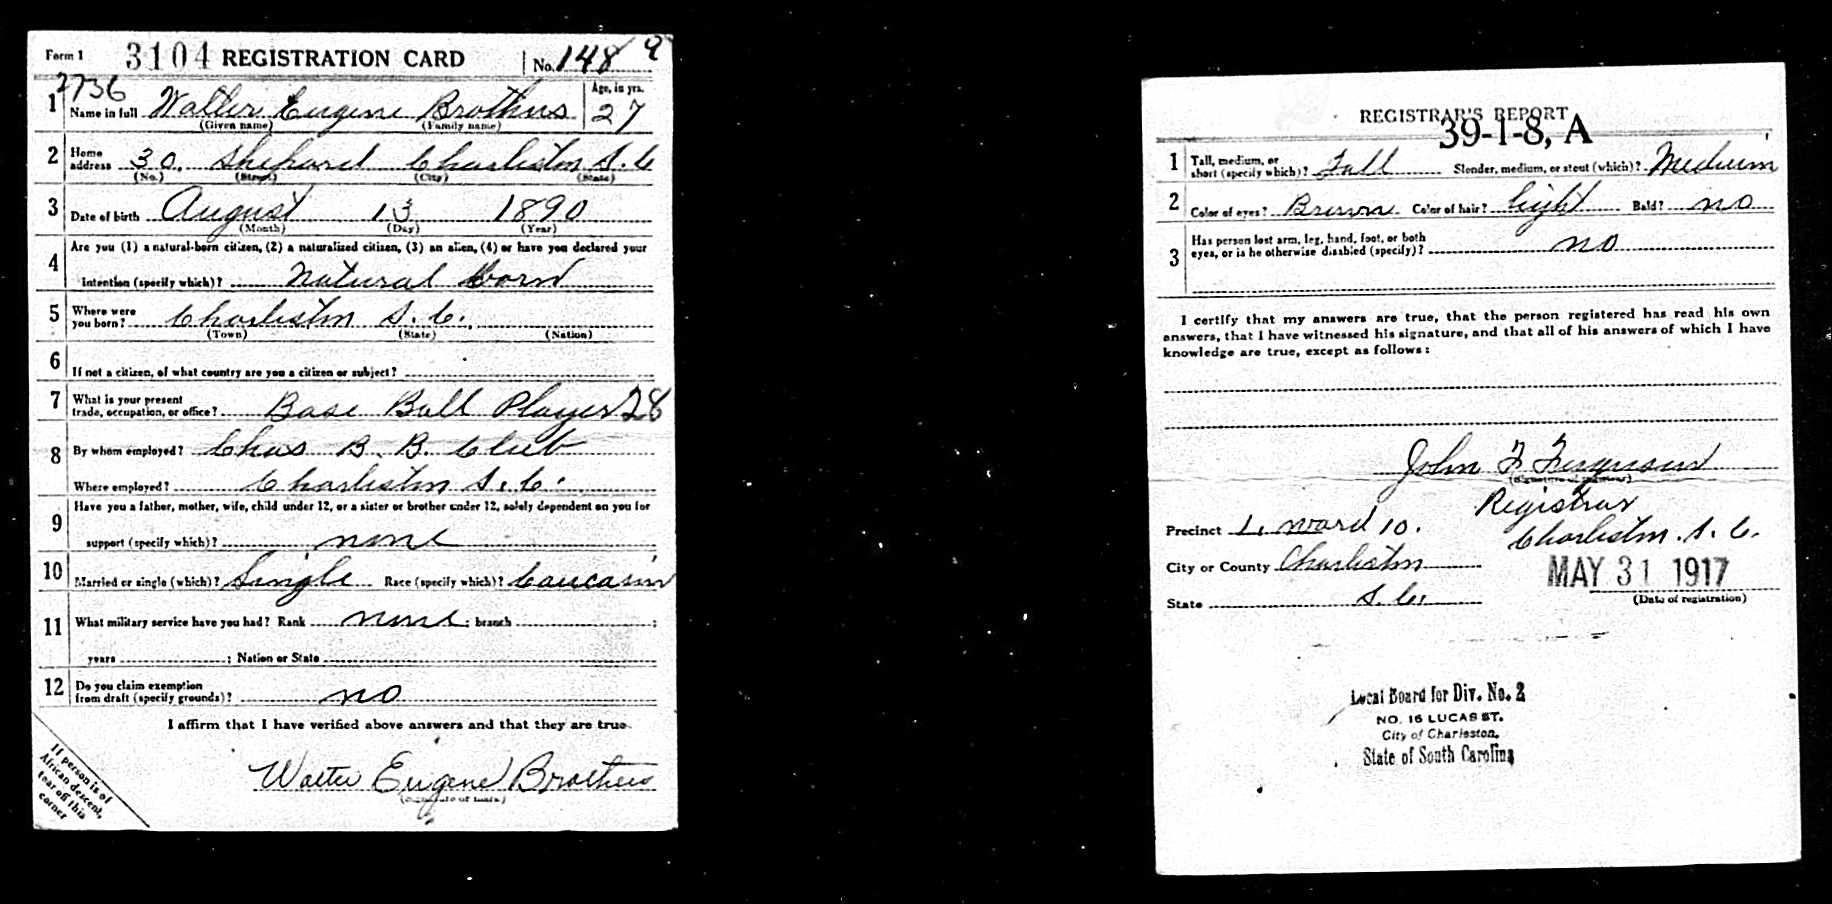 Form 1 3104 REGISTRATION CARD No. 148 9
2736
1 Name in full Walter Eugene Brothers Age, in yrs. 27
(Given name) (Family name)
2 Home address 30 Shepard Charleston S. C
(No.) (Street) (City) (State)
3 Date of birth August 13 1890
(Month) (Day) (Year)
4 Are you (1) a natural-born citizen, (2) a naturalized citizen, (3) an alien, (4) or have you declared your
intention (specify which)? Natural born
5 Where were you born? Charleston S. C.
(Town) (State) (Nation)
6 If not a citizen, of what country are you a citizen or subject?
7 What is your present trade, occupation, or office? Base Ball Player 28
8 By whom employed? Chas B. B. Club
Where employed? Charleston S. C.
9 Have you a father, mother, wife, child under 12, or a sister or brother under 12, solely dependent on you for
support (specify which)? none
10 Married or single (which)? Single Race (specify which)? Caucasin
11 What military service have you had? Rank none ; branch ;
years ; Nation or State
12 Do you claim exemption from draft (specify grounds)? no
I affirm that I have verified above answers and that they are true.
Walter Eugene Brothers
(Signature or mark)
If person is of
African descent,
tear off this
corner
REGISTRAR'S REPORT
39-1-8, A
1 Tall, medium, or short (specify which)? Tall Slender, medium, or stout (which)? Medium
2 Color of eyes? Brown Color of hair? light Bald? no
3 Has person lost arm, leg, hand, foot, or both eyes, or is he otherwise disabled (specify)? no
I certify that my answers are true, that the person registered has read his own
answers, that I have witnessed his signature, and that all of his answers of which I have
knowledge are true, except as follows:
John F Ferguson
(Signature of registrar)
Registrar
Precinct 1. ward 10. Charleston. S. C.
City or County Charleston
MAY 31 1917
State S. C. (Date of registration)
Local Board for Div. No. 2
NO. 16 LUCAS ST.
City of Charleston,
State of South Carolina